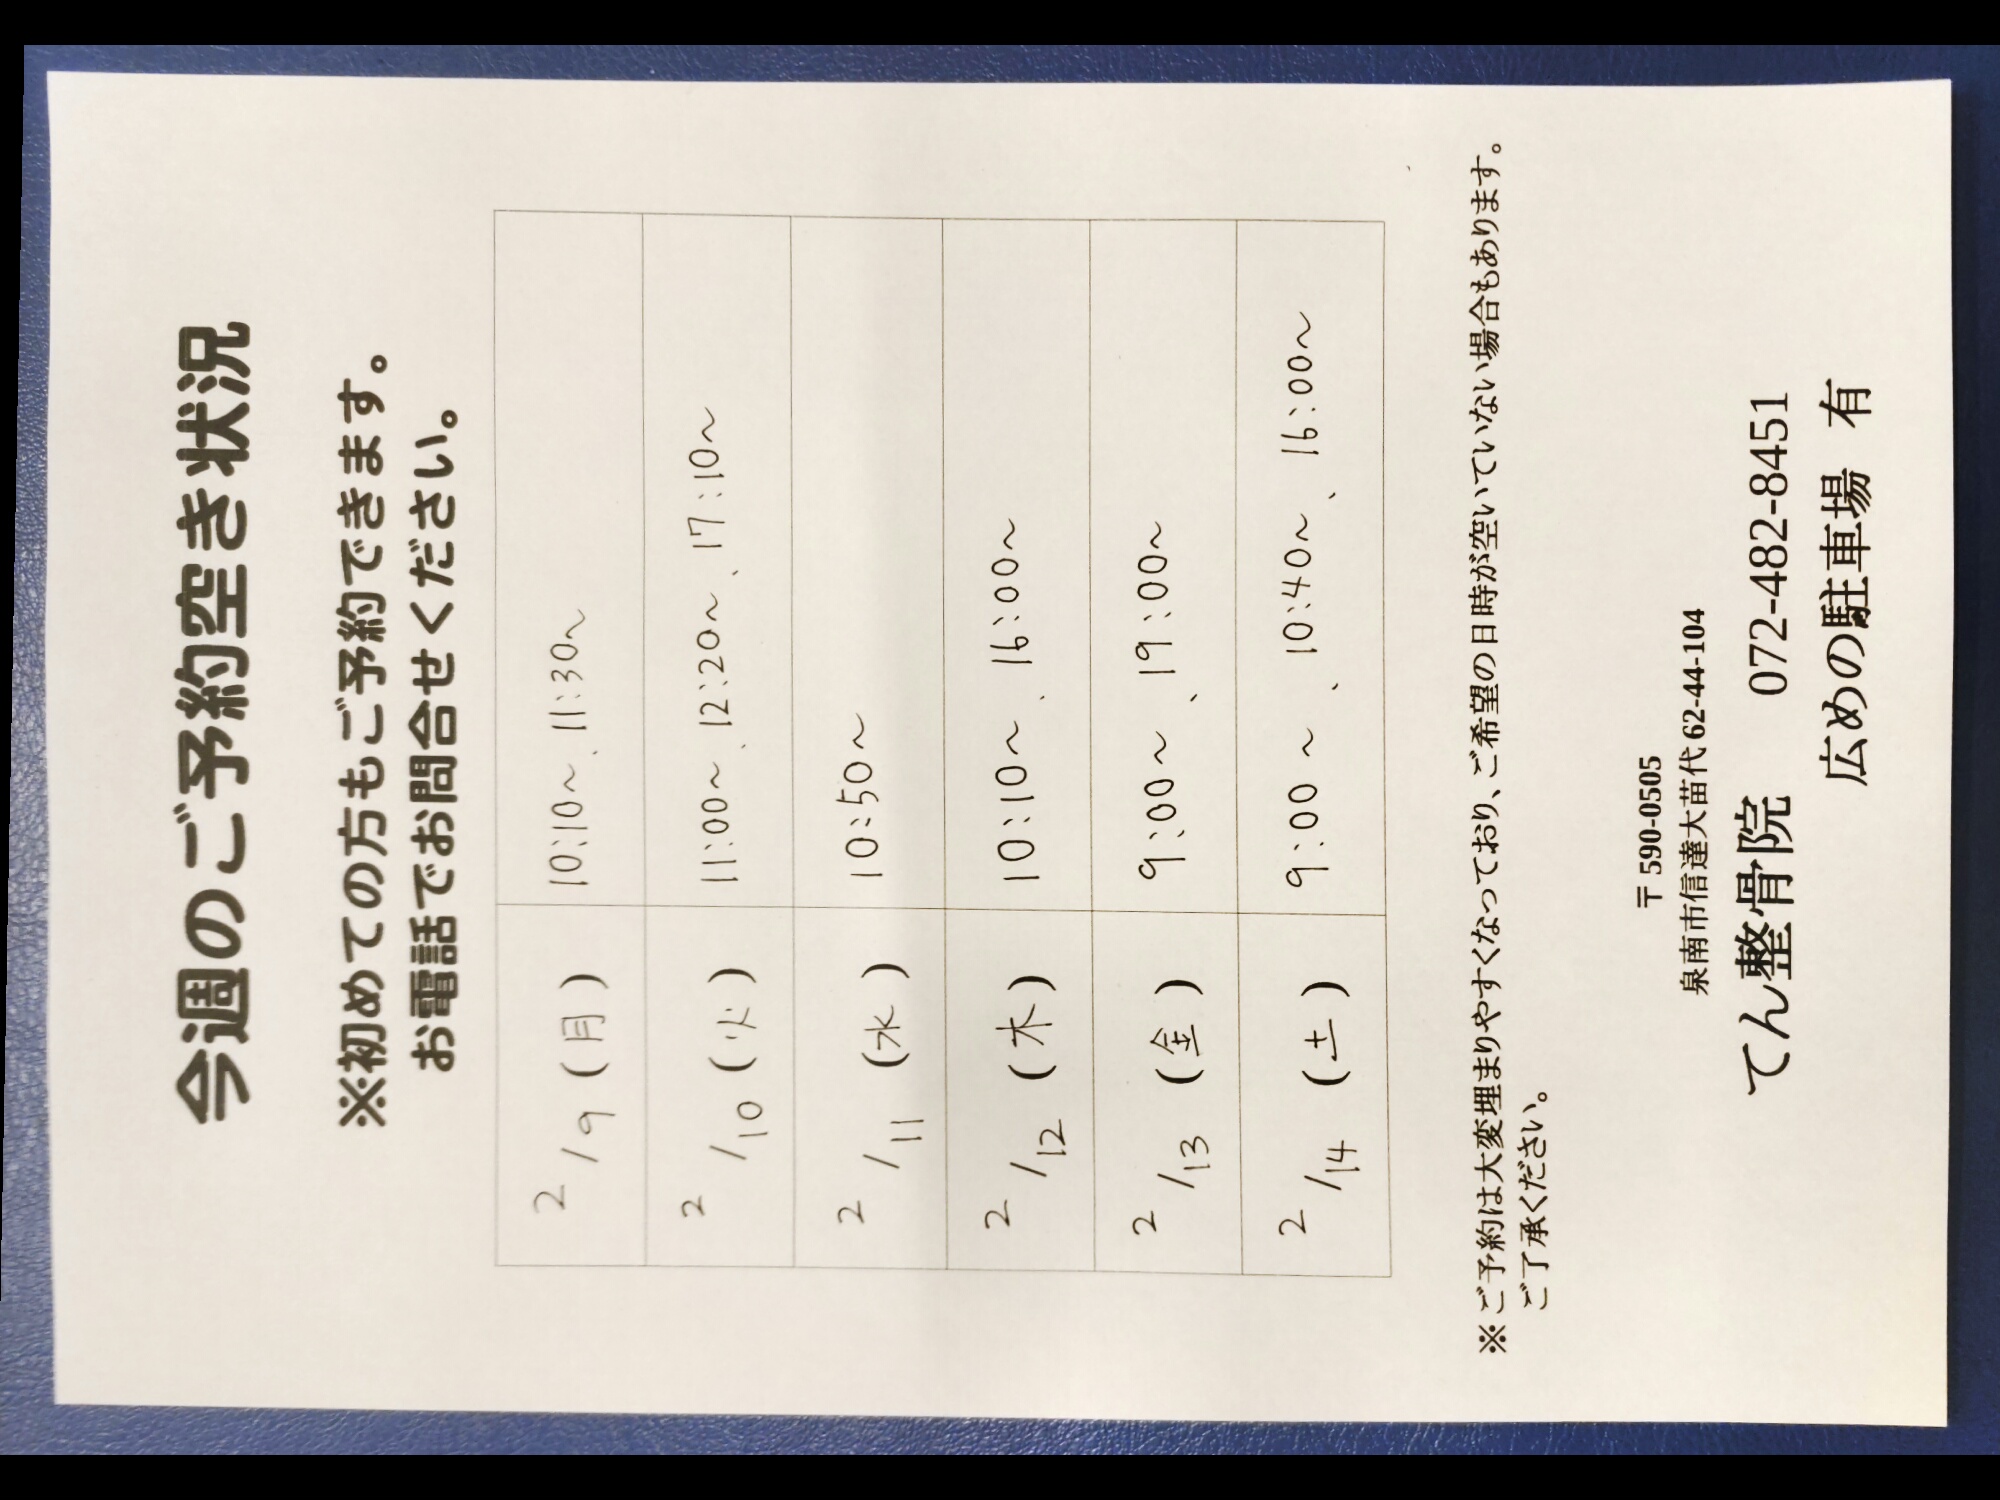 今週のご予約空き状況
※初めての方もご予約できます。
お電話でお問合せください。
2/9 (月) 10:10～、11:30～
2/10 (火) 11:00～、12:20～、17:10～
2/11 (水) 10:50～
2/12 (木) 10:10～、16:00～
2/13 (金) 9:00～、19:00～
2/14 (土) 9:00～、10:40～、16:00～
※ご予約は大変埋まりやすくなっており、ご希望の日時が空いていない場合もあります。
ご了承ください。
〒590-0505
泉南市信達大苗代62-44-104
てん整骨院 072-482-8451
広めの駐車場 有